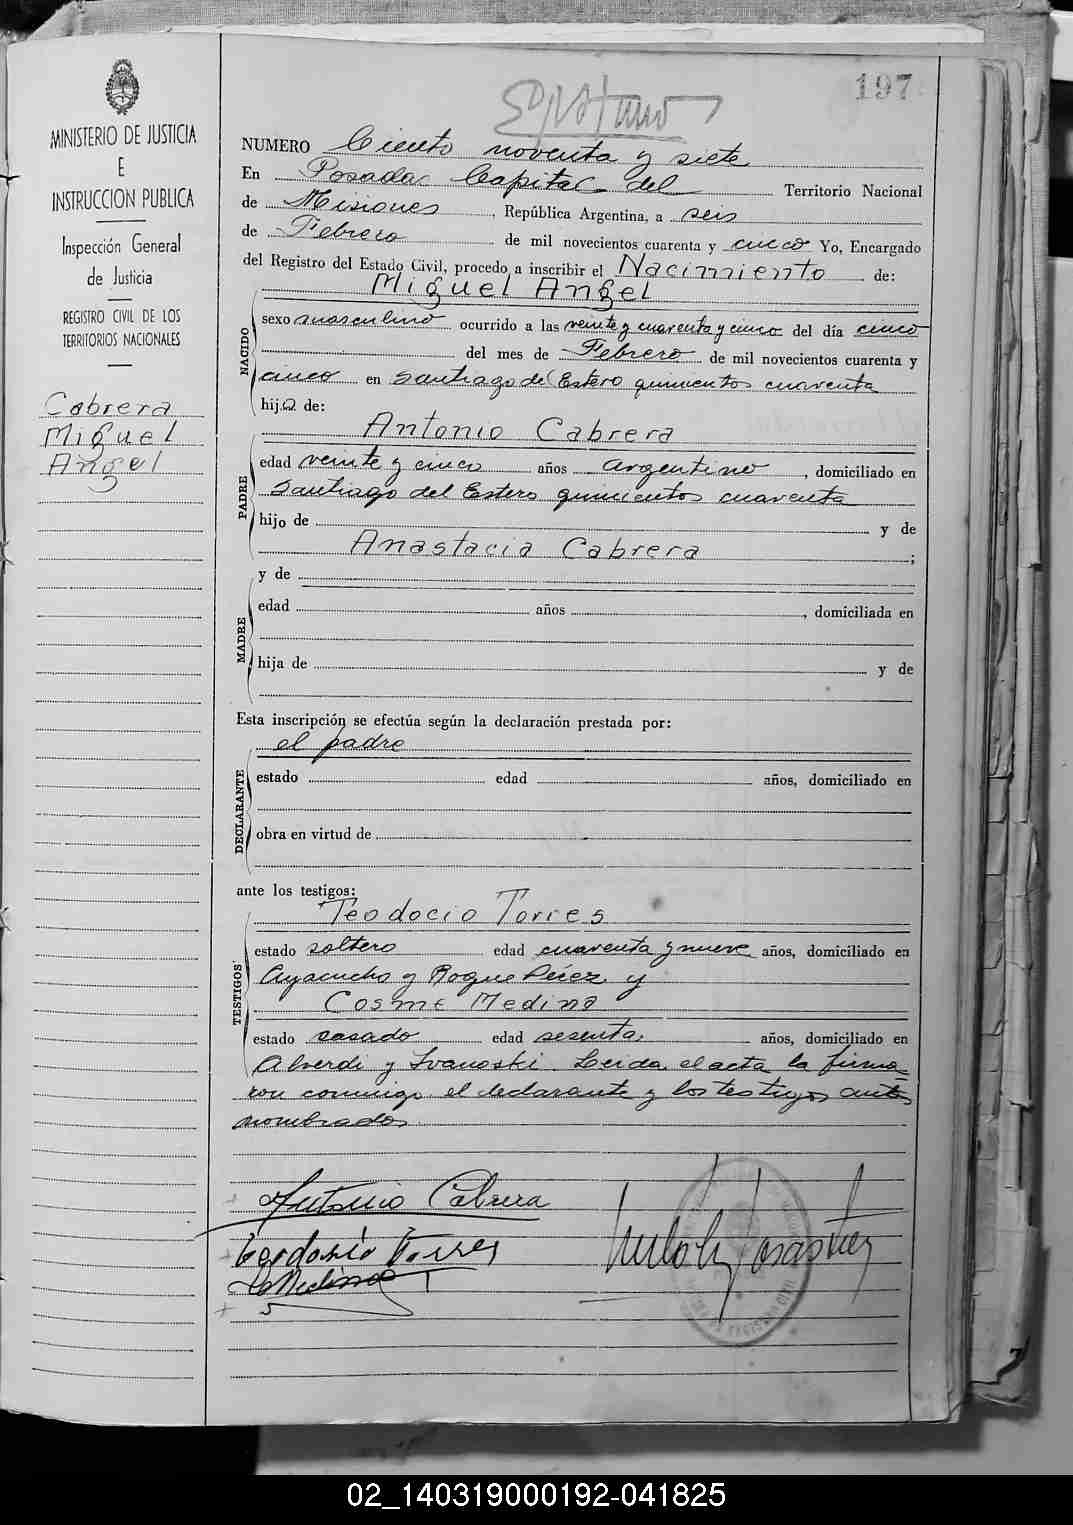 197
MINISTERIO DE JUSTICIA
E
INSTRUCCION PUBLICA
Inspección General
de Justicia
REGISTRO CIVIL DE LOS
TERRITORIOS NACIONALES
Cabrera
Miguel
Angel
NUMERO Ciento noventa y siete
En Posadas Capital del Territorio Nacional
de Misiones, República Argentina, a seis
de Febrero de mil novecientos cuarenta y cinco Yo, Encargado
del Registro del Estado Civil, procedo a inscribir el Nacimiento de:
Miguel Angel
NACIDO
sexo masculino ocurrido a las veinte y cuarenta y cinco del día cinco
del mes de Febrero de mil novecientos cuarenta y
cinco en Santiago del Estero quinientos cuarenta
hijo de:
Antonio Cabrera
PADRE
edad veinte y cinco años argentino, domiciliado en
Santiago del Estero quinientos cuarenta
hijo de y de
Anastacia Cabrera;
y de
MADRE
edad años, domiciliada en
hija de y de
Esta inscripción se efectúa según la declaración prestada por:
el padre
DECLARANTE
estado edad años, domiciliado en
obra en virtud de
ante los testigos:
Teodocio Torres
TESTIGOS
estado soltero edad cuarenta y nueve años, domiciliado en
Ayacucho y Roque Pérez y
Cosme Medina
estado casado edad sesenta años, domiciliado en
Alverdi y Ivanoski. Leida el acta la firma-
ron conmigo el declarante y los testigos antes
nombrados
Antonio Cabrera
Teodosio Torres
Medina
02_140319000192-041825